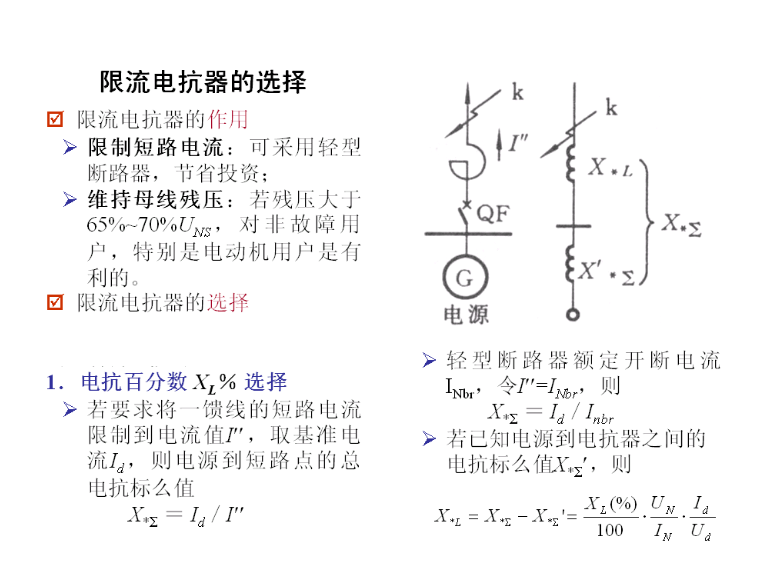 限流电抗器的选择
限流电抗器的作用
限制短路电流：可采用轻型
断路器，节省投资；
维持母线残压：若残压大于
65%~70%U_NS，对非故障用
户，特别是电动机用户是有
利的。
限流电抗器的选择
1．电抗百分数 X_L% 选择
若要求将一馈线的短路电流
限制到电流值I''，取基准电
流I_d，则电源到短路点的总
电抗标么值
X_*Σ = I_d / I''
k
I''
QF
G
电源
k
X_*L
X_*Σ
X'_*Σ
轻型断路器额定开断电流
I_Nbr，令I''=I_Nbr，则
X_*Σ = I_d / I_nbr
若已知电源到电抗器之间的
电抗标么值X_*Σ'，则
X_*L = X_*Σ − X_*Σ' = X_L(%)/100 · U_N/I_N · I_d/U_d